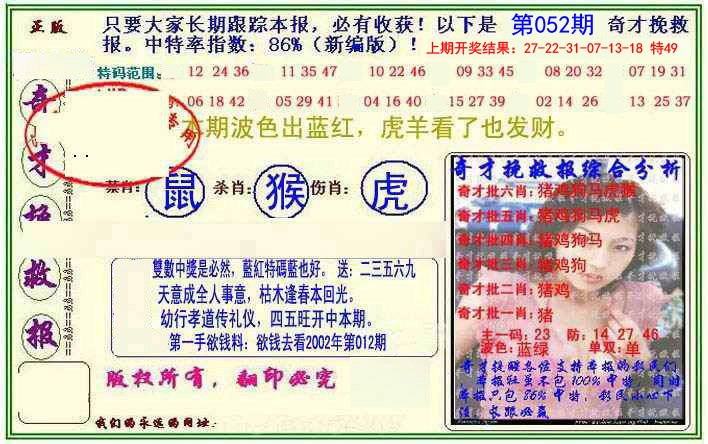 正版
只要大家长期跟踪本报，必有收获！以下是 第052期 奇才挽救
报。中特率指数：86%（新编版）！ 上期开奖结果：27-22-31-07-13-18 特49
特码范围: 12 24 36 11 35 47 10 22 46 09 33 45 08 20 32 07 19 31
06 18 42 05 29 41 04 16 40 15 27 39 02 14 26 13 25 37
本期波色出蓝红，虎羊看了也发财。
禁肖: 鼠 杀肖: 猴 伤肖: 虎
奇
才
救
报
雙數中獎是必然，藍紅特碼藍也好。 送：二三五六九
天意成全人事意，枯木逢春本回光。
幼行孝道传礼仪，四五旺开中本期。
第一手欲钱料：欲钱去看2002年第012期
版权所有，翻印必究
我们的永远的网址：
奇才挽救报综合分析
奇才批六肖：猪鸡狗马虎猴
奇才批五肖：猪鸡狗马虎
奇才批四肖：猪鸡狗马
奇才批三肖：猪鸡狗
奇才批二肖：猪鸡
奇才批一肖：猪
主一码：23 防：14 27 46
波色：蓝绿 单双：单
奇才挽救各位支持本报的彩民们
本报担虽不包100%中特，同时
本报只包86%中特，彩民小心下
注